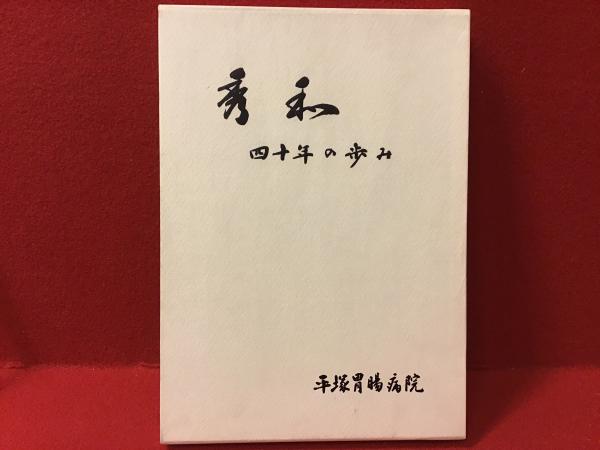 秀和
四十年の歩み
平塚胃腸病院